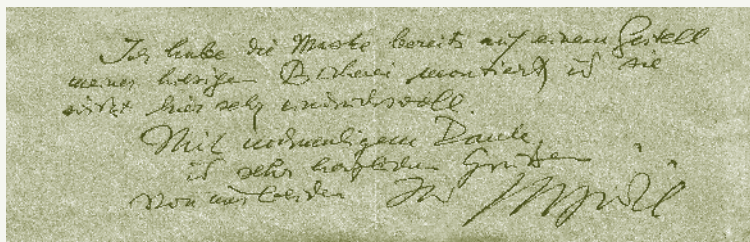 Ich habe die Maske bereits auf einem Gestell
meiner hiesigen Bücherei montiert, u sie
wirkt hier sehr eindrucksvoll.
Mit nochmaligem Danke,
u sehr herzlichen Grüßen
von uns beiden Ihr